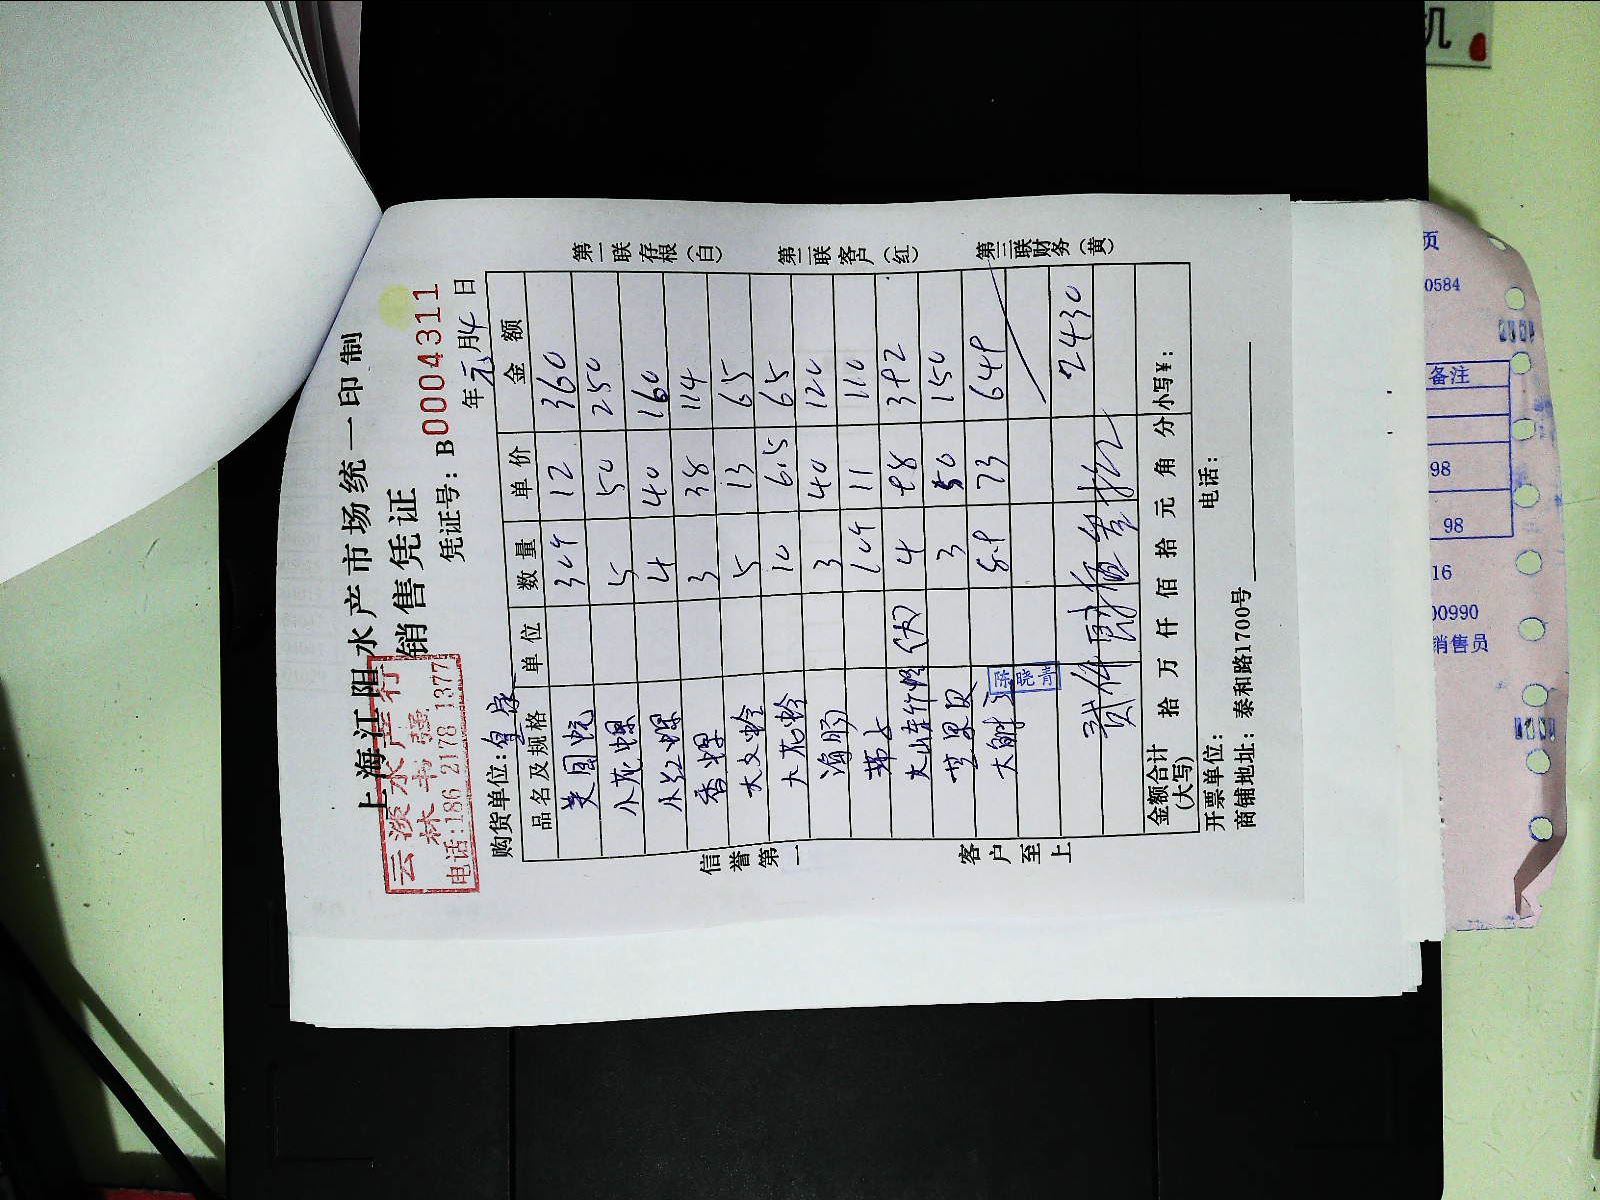 上海江阳水产市场统一印制
销售凭证
云淡水产行
林书强
电话:186 2178 1377
凭证号: B 0004311
年元月4日
购货单位:
品名及规格 单位 数量 单价 金额
美国蚬 30斤 12 360
小花螺 5 50 250
小红螺 4 40 160
香螺 3 38 114
大文蛤 5 13 65
大花蛤 10 6.5 65
海肠 3 40 120
10斤 11 110
4 98 392
芒果贝 3 50 150
大鲜 8.9 73 649
陈晓青
2430
贰仟肆佰叁拾
金额合计(大写) 拾 万 仟 佰 拾 元 角 分 小写¥:
开票单位: 电话:
商铺地址: 泰和路1700号
信誉第一
客户至上
第一联存根(白)
第二联客户(红)
第三联财务(黄)
机
页
0584
备注
98
98
16
00990
销售员